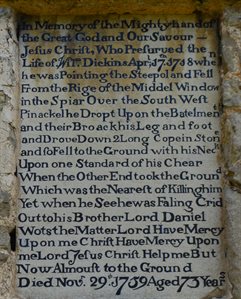 In Memory of the Mighty hand of
the Great God and Our Savour
Jesus Christ, Who Preserved the
Life of Wm. Dickins Apr. 17. 1718 when
he was Pointing the Steepol and Fell
From the Rige of the Middel Window
in the Spiar Over the South West
Pinackel he Dropt Upon the Batelmen
and their Broack his Leg and foot
and Drove Down 2 Long Copein Ston
and so Fell to the Ground with his Neck
Upon one Standard of his Chear
When the Other End took the Ground
Which was the Nearest of Killing him
Yet when he See he was Faling Crid
Out to his Brother Lord Daniel
Wots the Matter Lord Have Mercy
Upon me Christ Have Mercy Upon
me Lord Jesus Christ Help me But
Now Almoust to the Ground
Died Nov. 29th 1759 Aged 73 Years